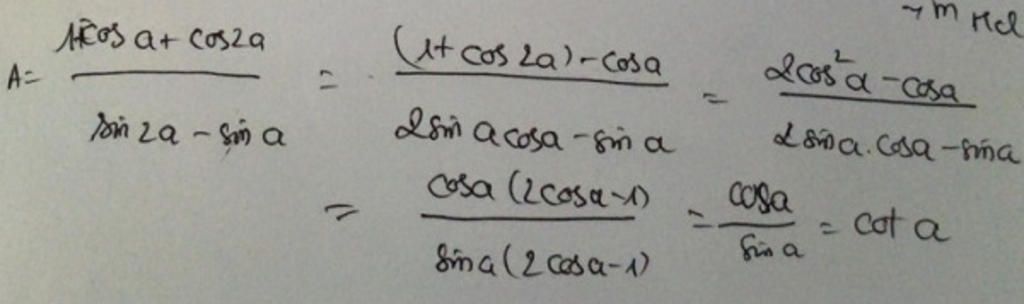 → m HCl
A = \frac{1-cos a + cos2a}{sin 2a - sin a} = \frac{(1 + cos 2a) - cosa}{2 sin a cosa - sin a} = \frac{2cos²a - cosa}{2 sina.cosa - sina}
= \frac{cosa (2cosa-1)}{sina (2cosa-1)} = \frac{cosa}{sin a} = cot a